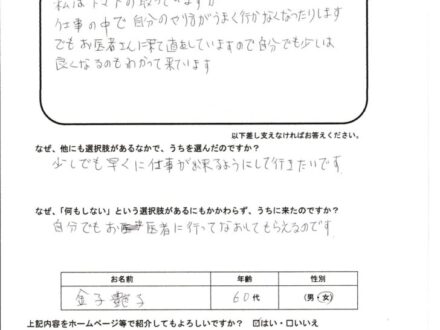 私はトマトの取っていますが
仕事の中で自分のやり方がうまく行かなくなったりします
でもお医者さんに来て直していますので自分でも少しは
良くなるのもわかって来ています
以下差し支えなければお答えください。
なぜ、他にも選択肢があるなかで、うちを選んだのですか？
少しでも早くに仕事が出来るようにして行きたいです
なぜ、「何もしない」という選択肢があるにもかかわらず、うちに来たのですか？
自分でもお医者に行ってなおしてもらえるのです
お名前 年齢 性別
金子 子 60代 男・女
上記内容をホームページ等で紹介してもよろしいですか？ ☑はい・□いいえ